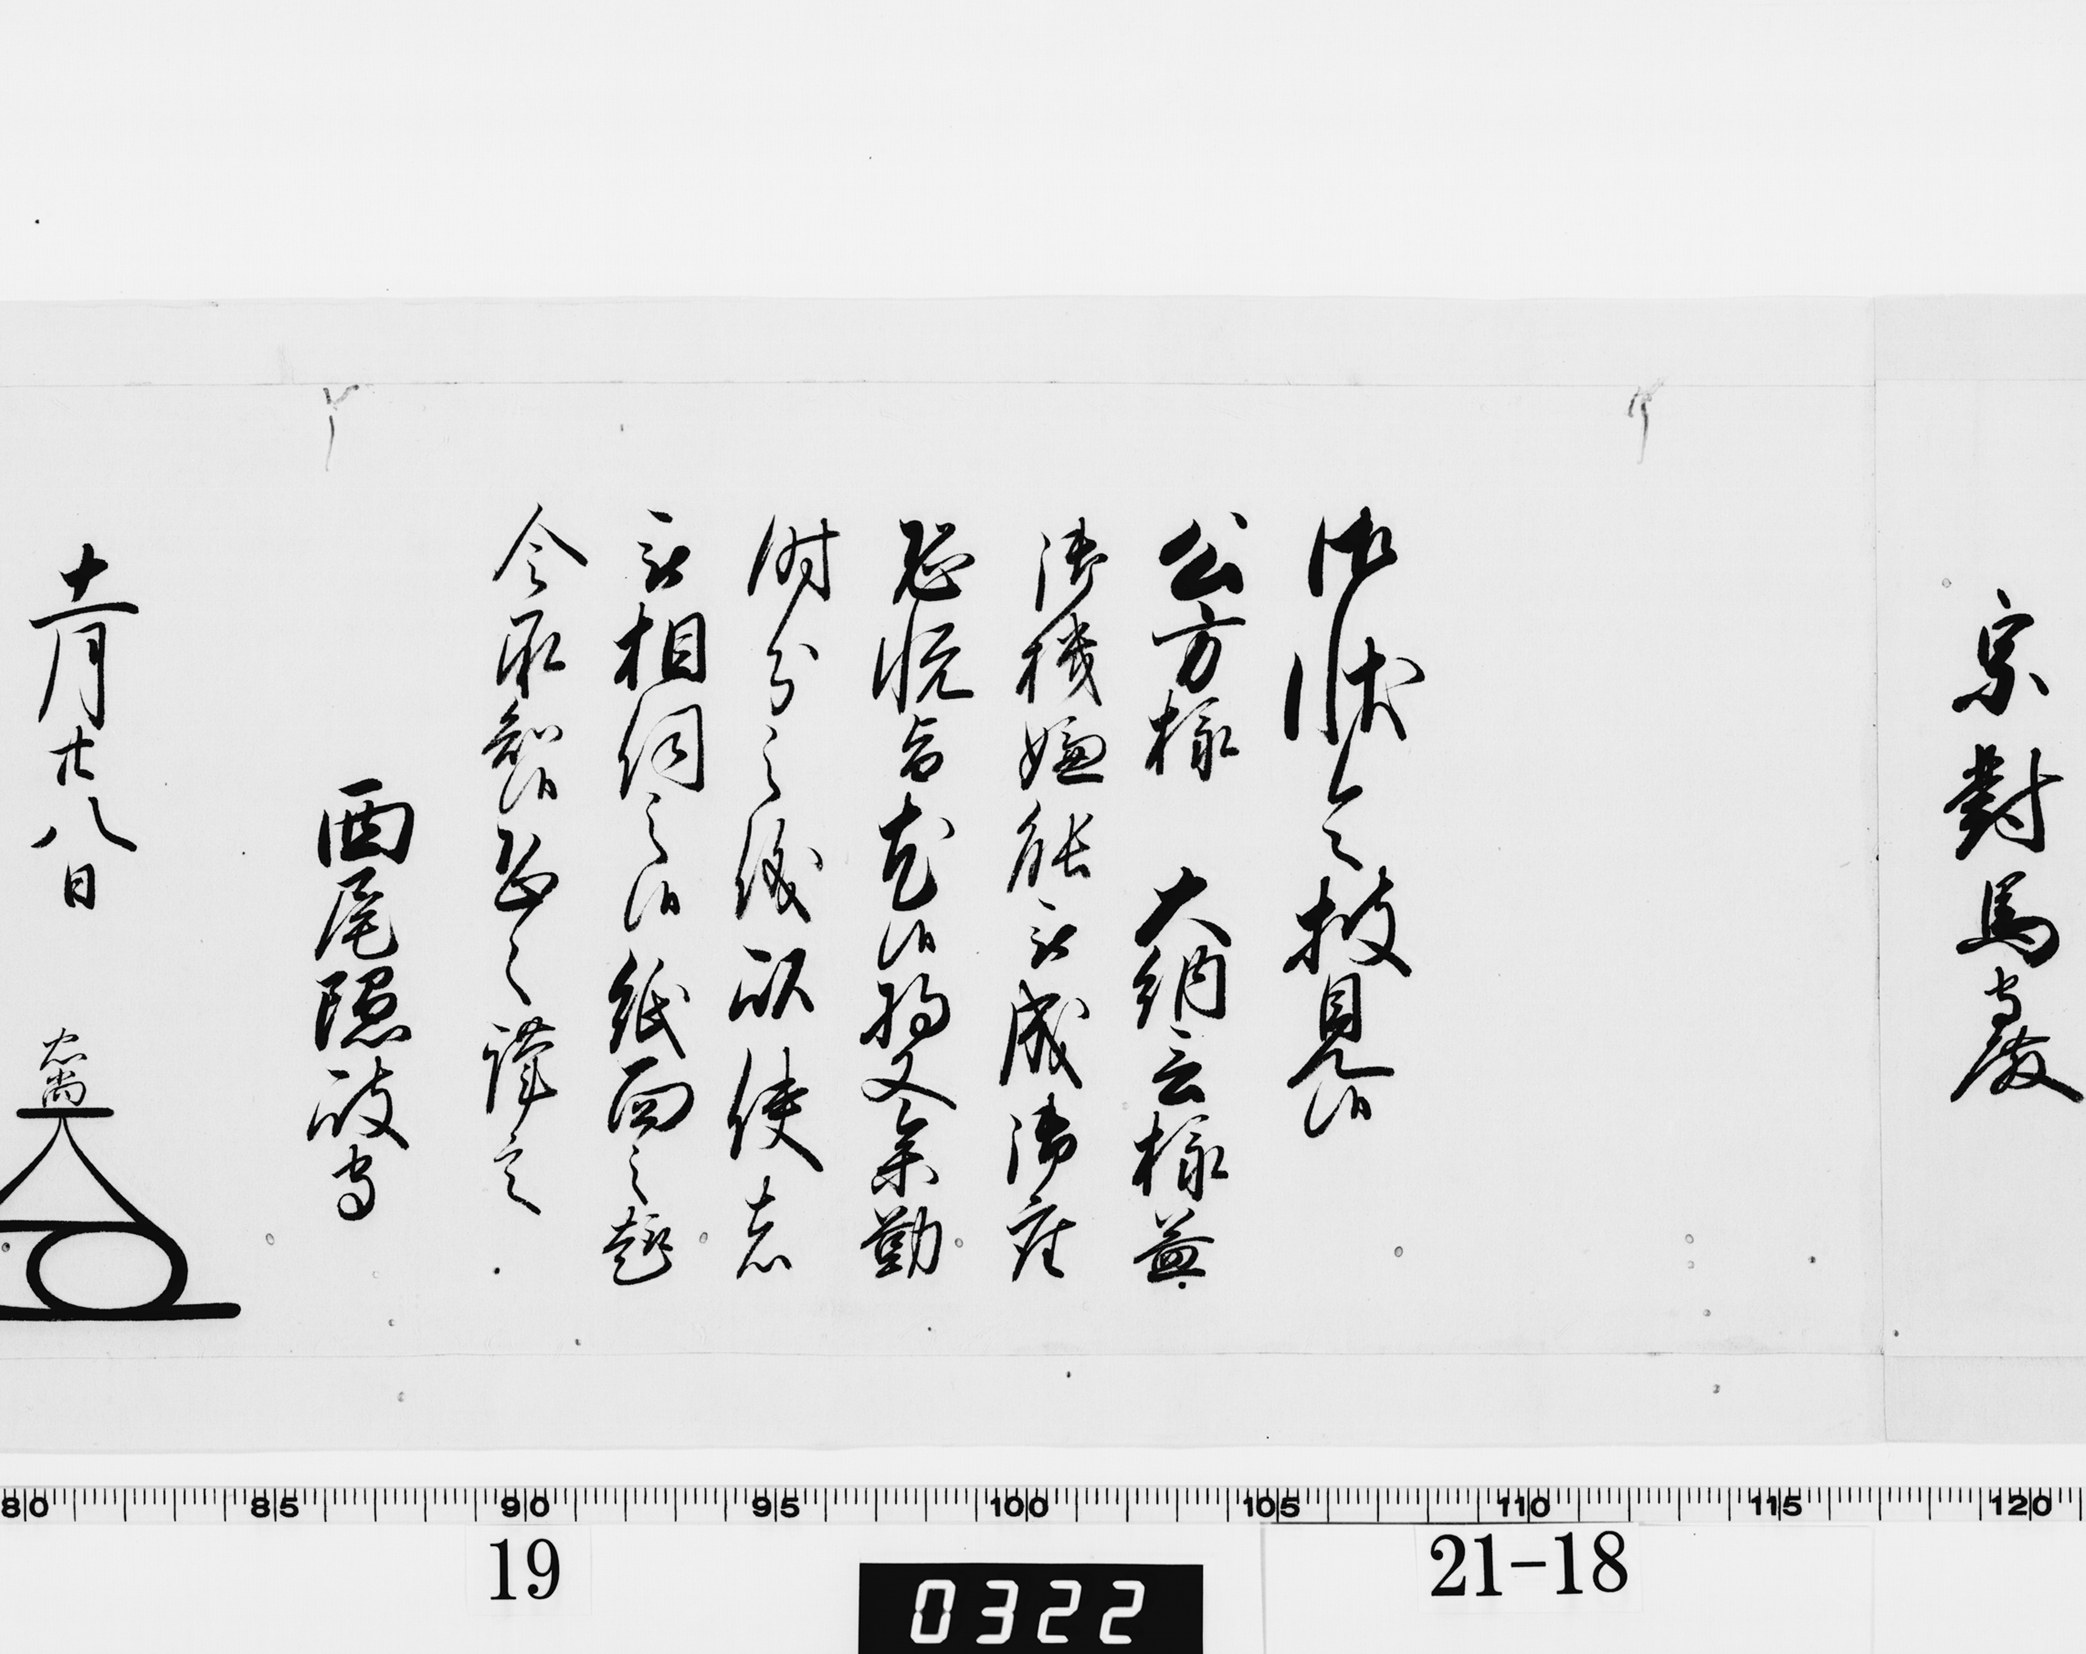 宗對馬守殿
御状令披見候
公方様　大納言様益
御機嫌能被成御座
恐悦旨尤候将又参勤
時分之儀以使者
被相伺之候紙面之趣
令承知候恐々謹言
西尾隠岐守
十一月廿八日　忠尚
80 85 90 95 100 105 110 115 120
19 0322 21-18